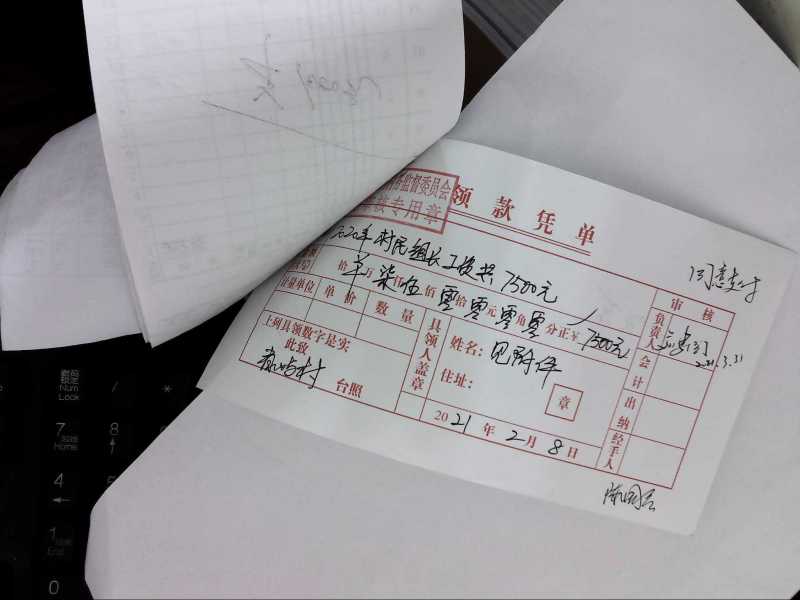 监督委员会
核专用章
领款凭单
2020年村民组长工资共7500元
同意支付
拾单万柒仟伍佰零拾零元零角零分正¥7500元
计量单位 单价 数量
上列具领数字是实
此致
村 台照
具领人盖章
姓名:见附件
住址:
章
2021年2月8日
审核
负责人
2021.3.31
会计
出纳
经手人
数码锁定
Num Lock
/
*
7 Home
8
4
5
1 End
0